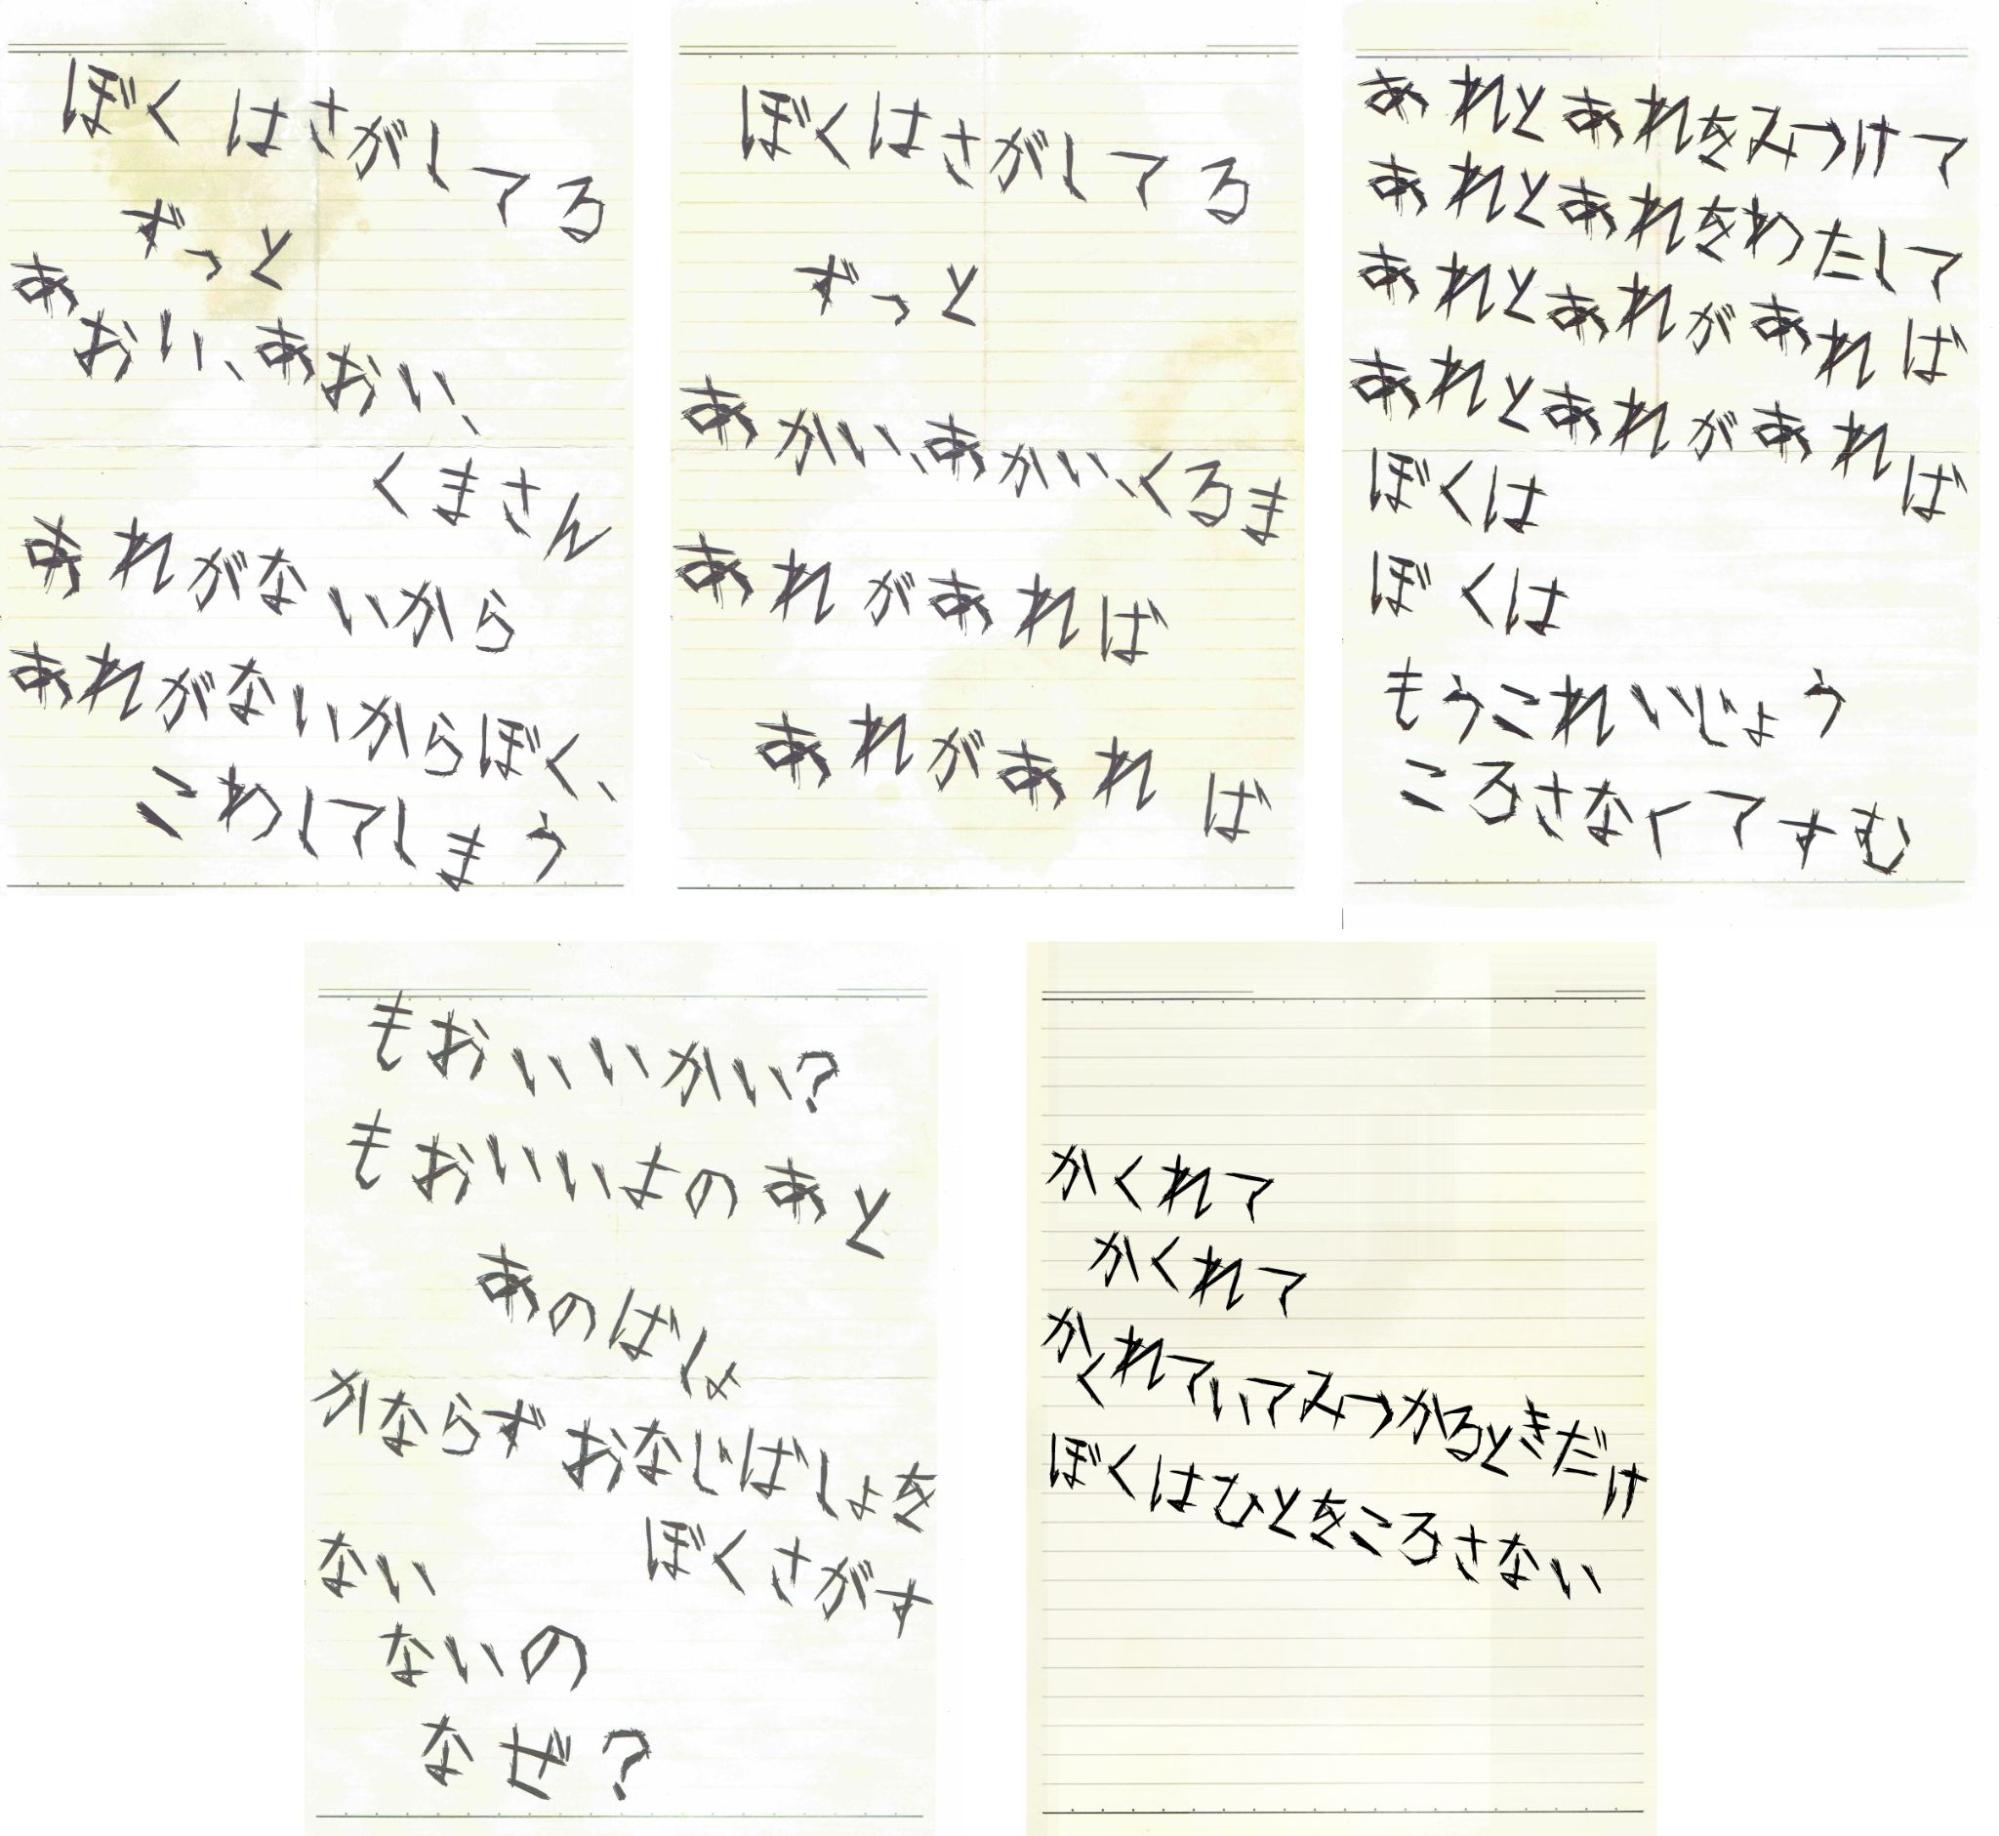 ぼくはさがしてる
ずっと
あおい、あおい、
くまさん
あれがないから
あれがないからぼく、
こわしてしまう
ぼくはさがしてる
ずっと
あかい、あかい、くるま
あれがあれば
あれがあれば
あれとあれをみつけて
あれとあれをわたして
あれとあれがあれば
あれとあれがあれば
ぼくは
ぼくは
もうこれいじょう
ころさなくてすむ
もおいいかい?
もおいいよのあと
あのばしょ
かならずおなじばしょを
ぼくさがす
ない
ないの
なぜ?
かくれて
かくれて
かくれていてみつかるときだけ
ぼくはひとをころさない